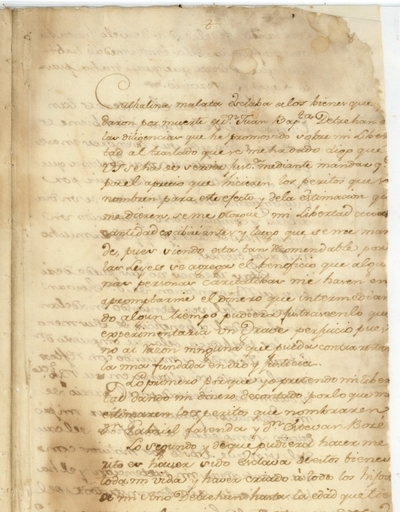 Cathalina mulata esclaba de los bienes que
daron por muerte de Dn. Juan Bapta. Detrehan
las diligencias que he promovido sobre mi Liber
tad al traslado que se me ha dado digo que
V.S. se ha de servir just.a mediante mandar q.
por el aprecio que hicieren los peritos que
nombren para este efecto y de la estimacion q.
me dieren, se me otorgue mi Libertad
cantidad y luego que se me man
de, pues siendo esta tan recomendable por
las Leyes el beneficio que algu
nas personas caritativas me haven en
aprompttarme el dinero que intermedian
do algun tiempo pudiera
experimentaria un Grave perjuicio pues
no ai razon ninguna que pueda contrarres
la mia fundada en dro. y Justicia.
Lo primero porque yo pretendo mi Liber
tad dando mi dinero de contado, por lo que me
estimaren los peritos que nombraren
Dn. Gabriel Fazenda y Dn. Estevan Boré
Lo segundo y de que pudiera hacer me
rito es haver sido Esclava de estos bienes
toda mi vida y haver criado á todo los hijos
de mi Amo Detrehan hasta la edad que